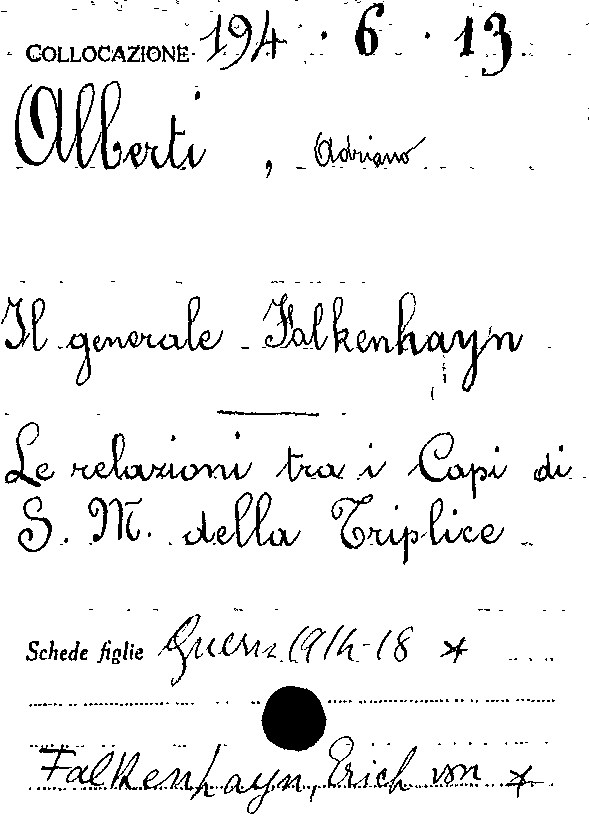 COLLOCAZIONE 194 · 6 · 13
Alberti, Adriano
Il generale Falkenhayn
Le relazioni tra i Capi di
S. M. della Triplice
Schede figlie Guerra 1914-18 *
Falkenhayn, Erich von *